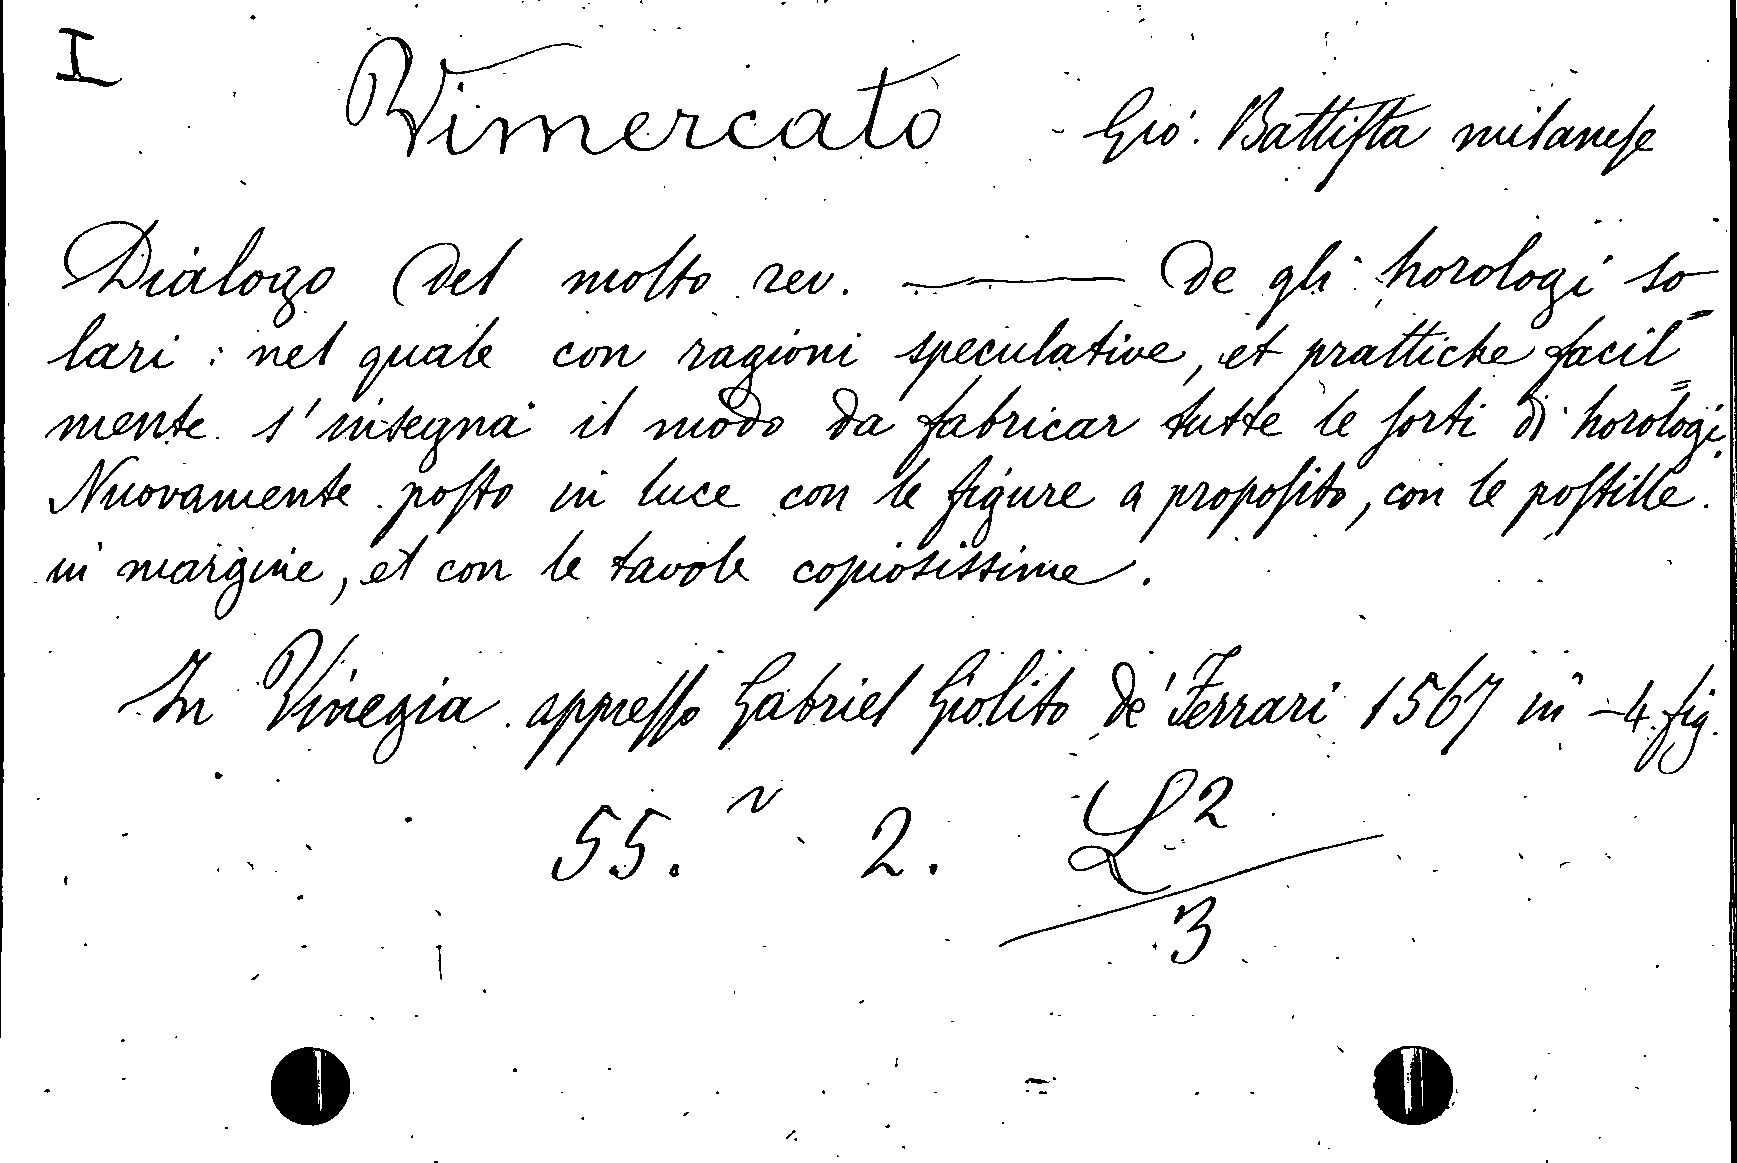 I
Vimercato Gio. Battiſta milaneſe
Dialogo del molto rev. —— de gli horologi so-
lari: nel quale con ragioni speculative, et prattiche facil=
mente s'insegna il modo da fabricar tutte le ſorti di horologi.
Nuovamente poſto in luce con le figure a propoſito, con le poſtille
in margine, et con le tavole copiosissime.
In Vinegia appreſſo Gabriel Giolito de' Ferrari 1567 in-4. fig.
55. v 2. L 2
3